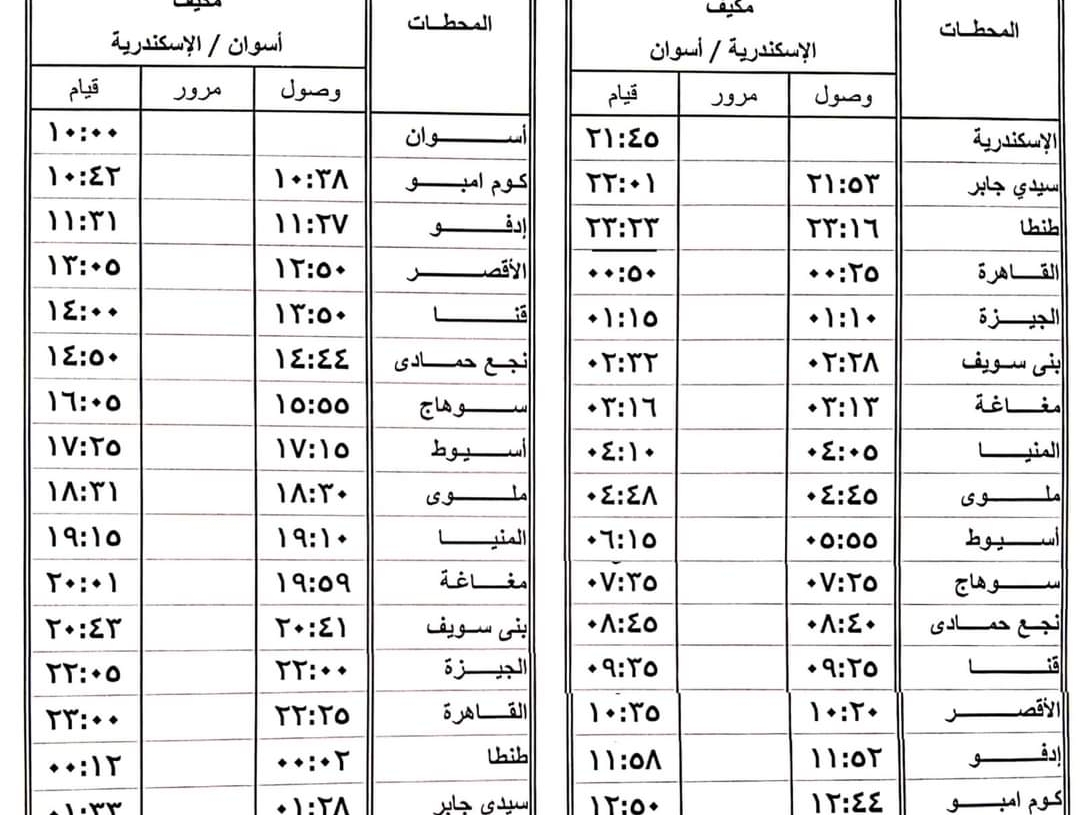 مكيف
المحطات
الإسكندرية / أسوان
وصول مرور قيام
الإسكندرية ٢١:٤٥
سيدي جابر ٢١:٥٣ ٢٢:٠١
طنطا ٢٣:١٦ ٢٣:٢٣
القاهرة ٠٠:٢٥ ٠٠:٥٠
الجيزة ٠١:١٠ ٠١:١٥
بنى سويف ٠٢:٢٨ ٠٢:٣٢
مغاغة ٠٣:١٣ ٠٣:١٦
المنيا ٠٤:٠٥ ٠٤:١٠
ملوى ٠٤:٤٥ ٠٤:٤٨
أسيوط ٠٥:٥٥ ٠٦:١٥
سوهاج ٠٧:٢٥ ٠٧:٣٥
نجع حمادى ٠٨:٤٠ ٠٨:٤٥
قنا ٠٩:٢٥ ٠٩:٣٥
الأقصر ١٠:٢٠ ١٠:٣٥
إدفو ١١:٥٢ ١١:٥٨
كوم امبو ١٢:٤٤ ١٢:٥٠
مكيف
المحطات
أسوان / الإسكندرية
وصول مرور قيام
أسوان ١٠:٠٠
كوم امبو ١٠:٣٨ ١٠:٤٢
إدفو ١١:٢٧ ١١:٣١
الأقصر ١٢:٥٠ ١٣:٠٥
قنا ١٣:٥٠ ١٤:٠٠
نجع حمادى ١٤:٤٤ ١٤:٥٠
سوهاج ١٥:٥٥ ١٦:٠٥
أسيوط ١٧:١٥ ١٧:٢٥
ملوى ١٨:٣٠ ١٨:٣١
المنيا ١٩:١٠ ١٩:١٥
مغاغة ١٩:٥٩ ٢٠:٠١
بنى سويف ٢٠:٤١ ٢٠:٤٣
الجيزة ٢٢:٠٠ ٢٢:٠٥
القاهرة ٢٢:٢٥ ٢٣:٠٠
طنطا ٠٠:٠٢ ٠٠:١٢
سيدى جابر ٠١:٢٨ ٠١:٣٣